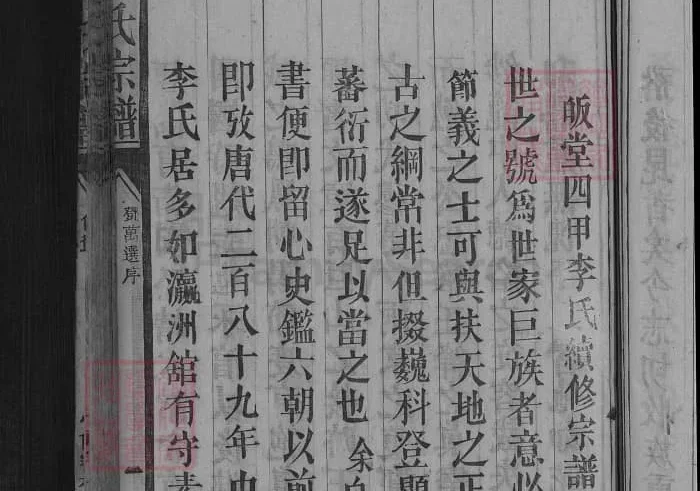 皈堂四甲李氏續修宗譜
世之號爲世家巨族者意必
節義之士可與扶天地之正
古之綱常非但掇巍科登顯
蕃衍而遂足以當之也余自
書便即留心史鑑六朝以前
即攷唐代二百八十九年中
李氏居多如瀛洲舘有守素
鄧萬選序
氏宗譜